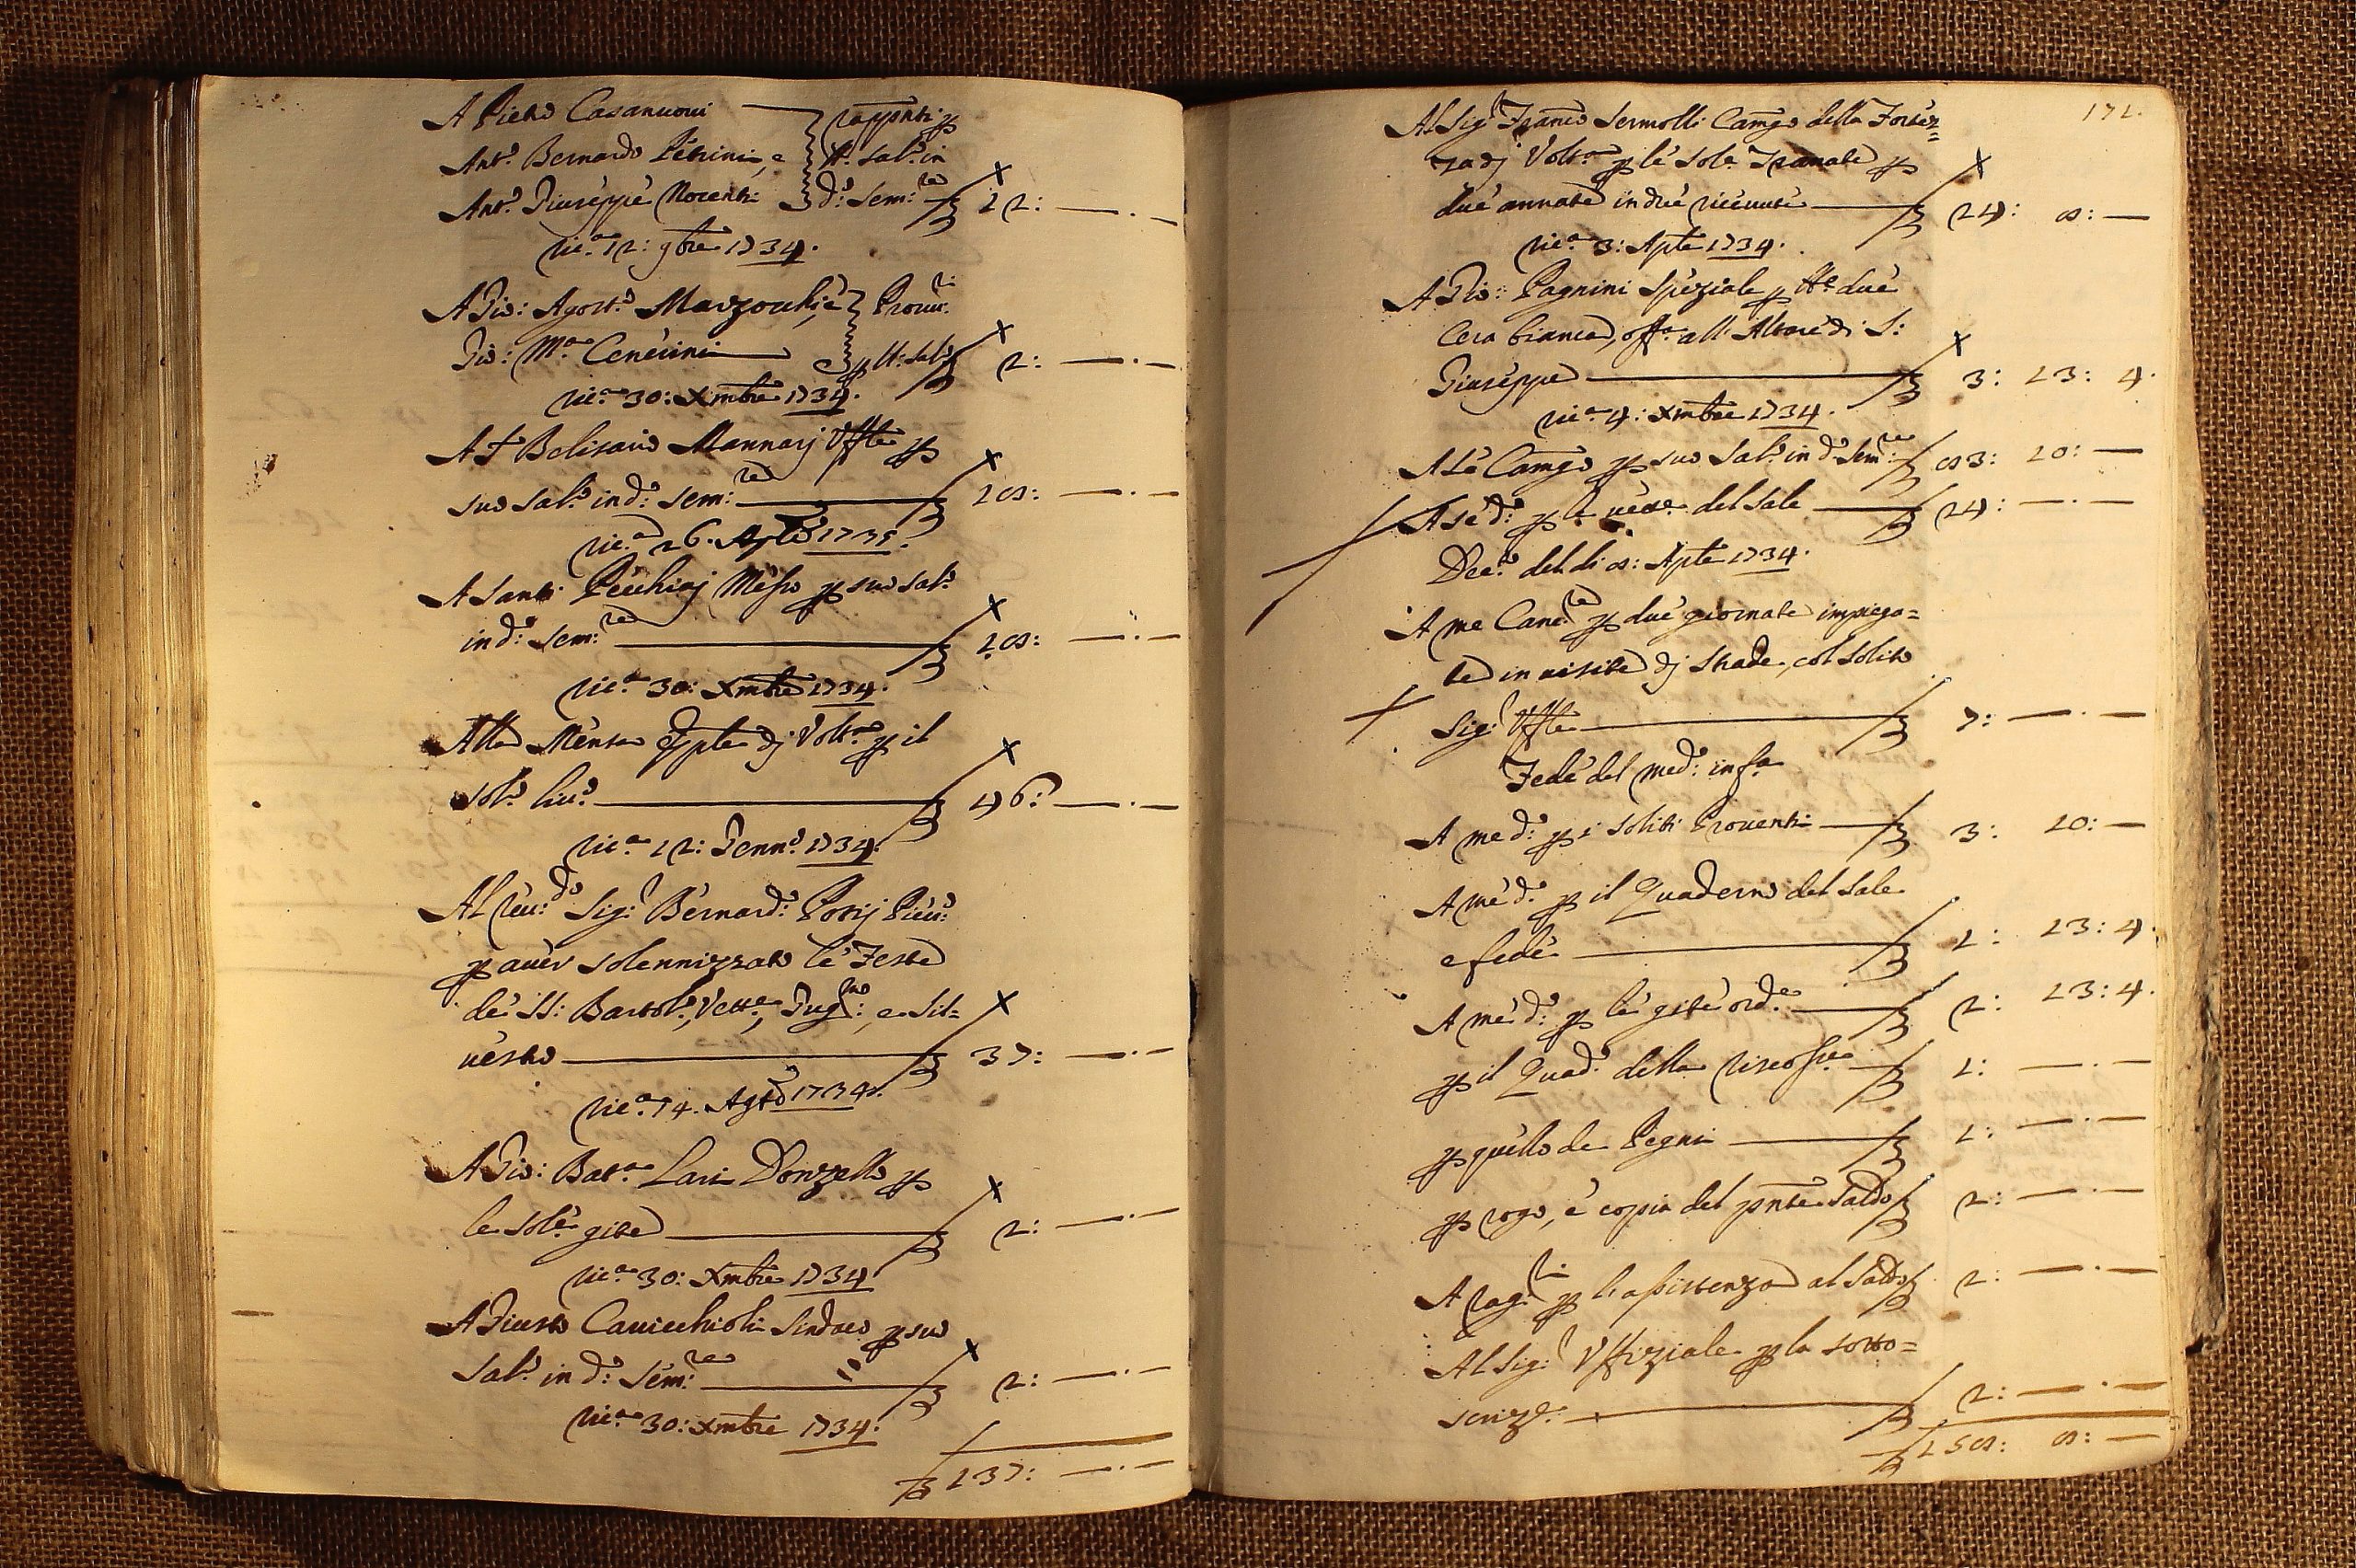 A Pietro Casanuovi
Ant.° Bernardo Petrini, e
Ant.° Giuseppe Nocenti
rapp.nti p
lt.° sal.° in
d.° Sem.re 12: —.—
ric.a 12: 9bre 1734.
A Gio: Agost.° Marzocchi, e
Gio: M.a Cenerini
Prouu.ri
p lt.° sal.° 2: —.—
ric.a 30: Xmbre 1734.
A Belisario Mannarj Uffle p
suo sal.° in d.° sem:re 28: —.—
ric.a 26. Aple 1735.
A Santi Pecchiaj Messo p suo sal.°
in d.° sem:re 18: —.—
ric.a 30: Xmbre 1734.
Alla Mensa Epple dj Volt.a p il
sol.° liu.° 46: —.—
ric.a 12: Genn.° 1734.
Al reu:do Sig:r Bernard.° Pieu:
p auer solennizzato le Feste
de SS: Bartol.°, Vett.e, Giug.no: e Sil=
uestro 37: —.—
ric.a 14. Ag.to 1734.
A Gio: Bat.a Lari Donzello p
le sol.e gite 2: —.—
ric.a 30: Xmbre 1734
A Giusto Cauicchioli Sindaco p suo
sal.° in d.° Sem:re 2: —.—
ric.a 30: Xmbre 1734.
137: —.—
171.
Al Sig.r Franc.° Sermolli Cam.go della Fortez=
za dj Volt.a p le sol.e Granate p
due annate in due riceuute 24: 8: —
ric.a 3: Aple 1734.
A Gio: Pagnini Speziale p lt.e due
cera bianca, off.a all Altare di S:
Giuseppe 3: 13: 4.
ric.a 4: Xmbre 1734.
A Sé Cam.go p suo Sal.° in d.° Sem:re 83: 10: —
A sé d.° p del Sale 24: —.—
Dec.° del di 8: Aple 1734.
A me Canc.re p due giornate impiega=
te in uisite dj strade, col solito
Sig:r Uffle 7: —.—
Fede del med.° in f.a
A me d.° p i soliti Prouenti 3: 10: —
A me d.° p il Quaderno del Sale
e fede 1: 13: 4.
A me d.° p le gite ord.e 2: 13: 4.
p il Quad.° della riscoss.e 1: —.—
p quello de Pegni 1: —.—
p rogo, e copia del pnte Saldo 2: —.—
A rag:ri p l'assistenza al Saldo 2: —.—
Al Sig:r Uffiziale p la sotto=
scriz.e 2: —.—
158: 8: —